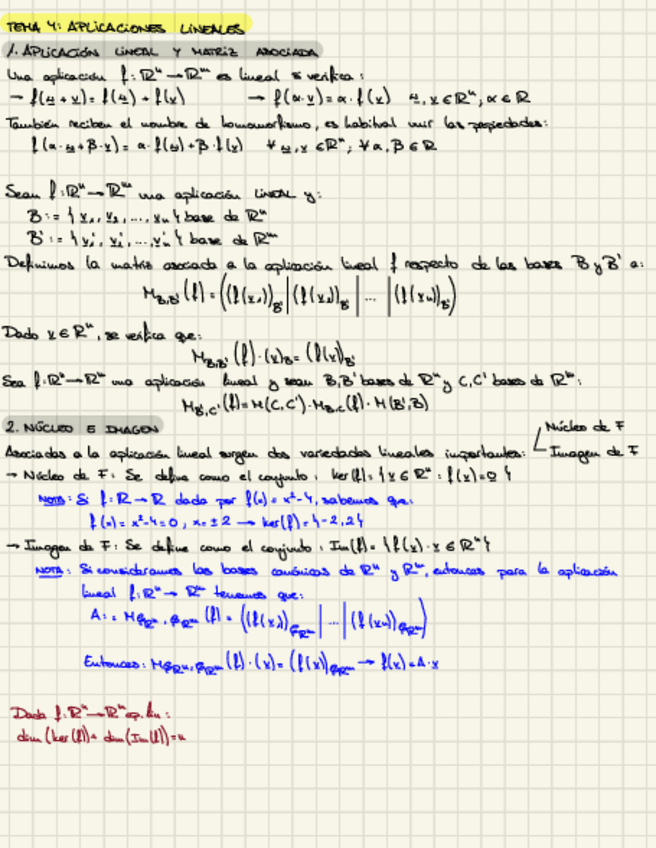 TEMA 4: APLICACIONES LINEALES
1. APLICACIÓN LINEAL Y MATRIZ ASOCIADA
Una aplicación f: ℝⁿ → ℝᵐ es lineal si verifica:
→ f(u + v) = f(u) + f(v) → f(α·v) = α·f(v) u, v ∈ ℝⁿ, α ∈ ℝ
También reciben el nombre de homomorfismo, es habitual unir las propiedades:
f(α·u + β·v) = α·f(u) + β·f(v) ∀ u, v ∈ ℝⁿ; ∀ α, β ∈ ℝ
Sean f: ℝⁿ → ℝᵐ una aplicación LINEAL y:
B := {v₁, v₂, ..., vₙ} base de ℝⁿ
B' := {v₁', v₂', ..., vₙ'} base de ℝᵐ
Definimos la matriz asociada a la aplicación lineal f respecto de las bases B y B' a:
M_{B,B'}(f) = ((f(v₁))_{B'} | (f(v₂))_{B'} | ... | (f(vₙ))_{B'})
Dado v ∈ ℝⁿ, se verifica que:
M_{B,B'}(f)·(v)_B = (f(v))_{B'}
Sea f: ℝⁿ → ℝᵐ una aplicación lineal y sean B, B' bases de ℝⁿ y C, C' bases de ℝᵐ:
M_{B',C'}(f) = M(C,C')·M_{B,C}(f)·M(B',B)
2. NÚCLEO E IMAGEN
Asociadas a la aplicación lineal surgen dos variedades lineales importantes:
Núcleo de F
Imagen de F
→ Núcleo de F: Se define como el conjunto: ker(f) = {v ∈ ℝⁿ : f(v) = 0}
NOTA: Si f: ℝ → ℝ dada por f(x) = x² - 4, sabemos que:
f(x) = x² - 4 = 0, x = ± 2 → ker(f) = {-2, 2}
→ Imagen de F: Se define como el conjunto: Im(f) = {f(v) · v ∈ ℝⁿ}
NOTA: Si consideramos las bases canónicas de ℝⁿ y ℝᵐ, entonces para la aplicación
lineal f: ℝⁿ → ℝᵐ tenemos que:
A := M_{βℝⁿ, βℝᵐ}(f) = ((f(v₁))_{βℝᵐ} | ... | (f(vₙ))_{βℝᵐ})
Entonces: M_{βℝⁿ, βℝᵐ}(f)·(v) = (f(v))_{βℝᵐ} → f(v) = A·v
Dada f: ℝⁿ → ℝᵐ ap. lin:
dim(ker(f)) + dim(Im(f)) = n